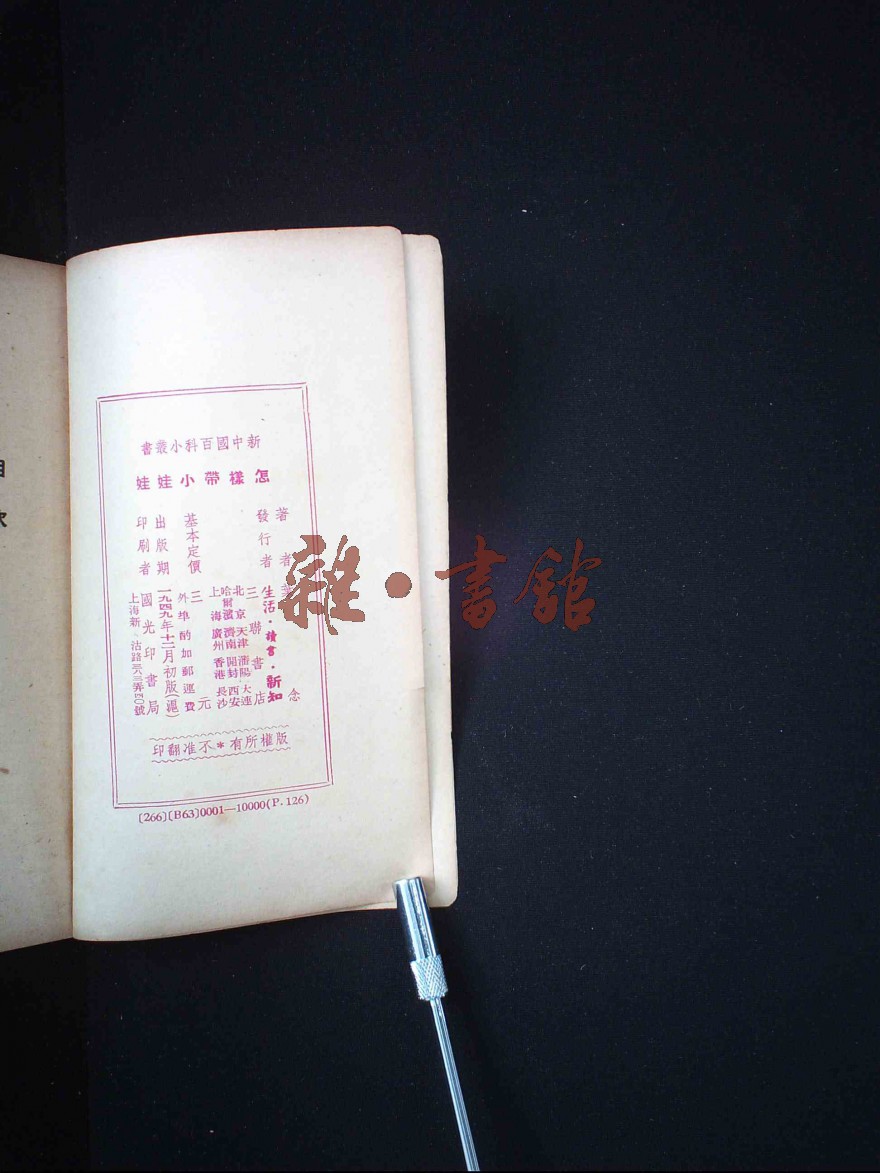 新中國百科小叢書
怎樣帶小娃娃
著者 念
發行者 生活·讀書·新知
三聯書店
北京 天津 瀋陽 大連
哈爾濱 濟南 開封 西安
上海 廣州 香港 長沙
基本定價 三元
外埠酌加郵運費
出版期 一九四九年十二月初版(滬)
印刷者 國光印書局
上海新沽路
版權所有*不准翻印
[266](B63)0001—10000(P.126)
雜·書館